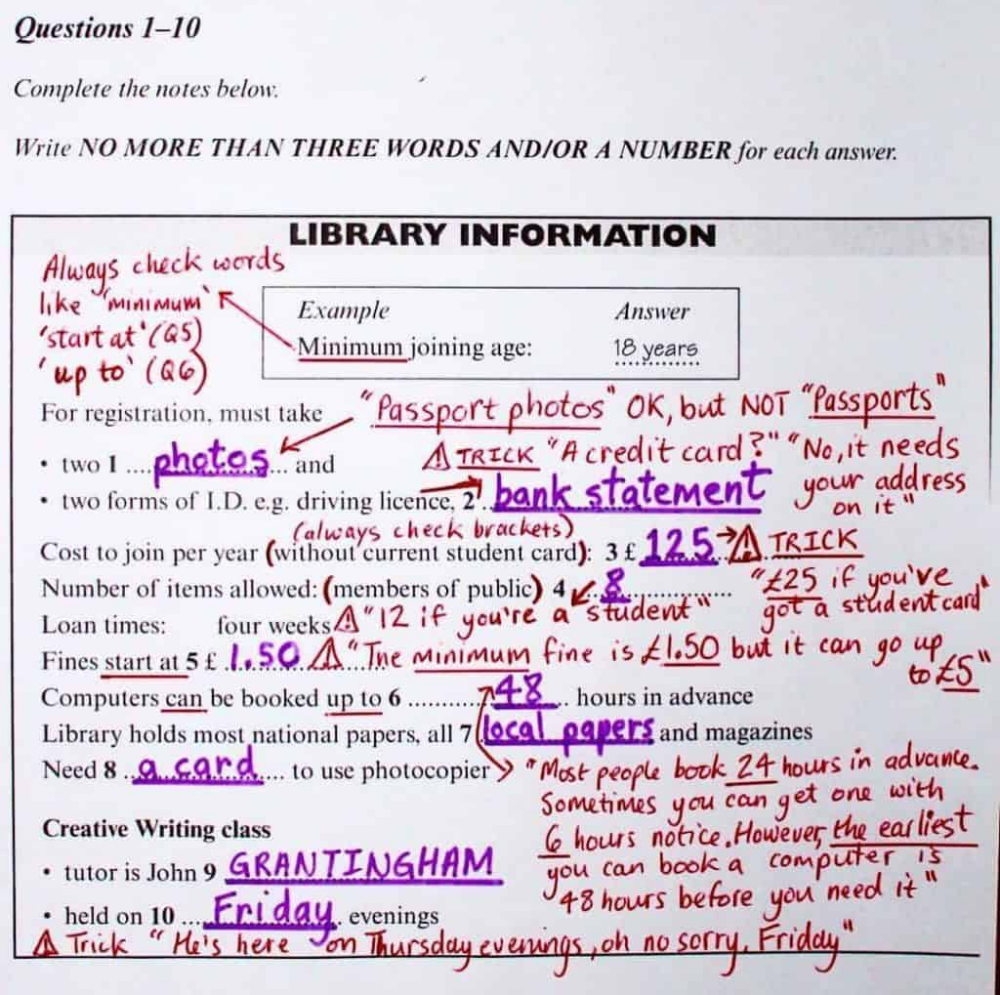 Questions 1–10
Complete the notes below.
Write NO MORE THAN THREE WORDS AND/OR A NUMBER for each answer.
LIBRARY INFORMATION
Always check words
like 'minimum'
'start at' (Q5)
'up to' (Q6)
Example Answer
Minimum joining age: 18 years
For registration, must take
"Passport photos" OK, but NOT "Passports"
• two 1 ....photos... and
⚠ TRICK "A credit card?" "No, it needs
your address
on it"
• two forms of I.D. e.g. driving licence, 2 ..bank statement
(always check brackets)
Cost to join per year (without current student card): 3 £ 125 ⚠ TRICK
"£25 if you've
got a student card"
Number of items allowed: (members of public) 4 ..8..............
Loan times: four weeks ⚠ "12 if you're a student"
Fines start at 5 £ .1.50 ⚠ "The minimum fine is £1.50 but it can go up
to £5"
Computers can be booked up to 6 ............48... hours in advance
Library holds most national papers, all 7 local papers and magazines
Need 8 ..a card.... to use photocopier
"Most people book 24 hours in advance.
Sometimes you can get one with
6 hours notice. However, the earliest
you can book a computer is
48 hours before you need it"
Creative Writing class
• tutor is John 9 GRANTINGHAM
• held on 10 ....Friday. evenings
⚠ Trick "He's here on Thursday evenings, oh no sorry, Friday"